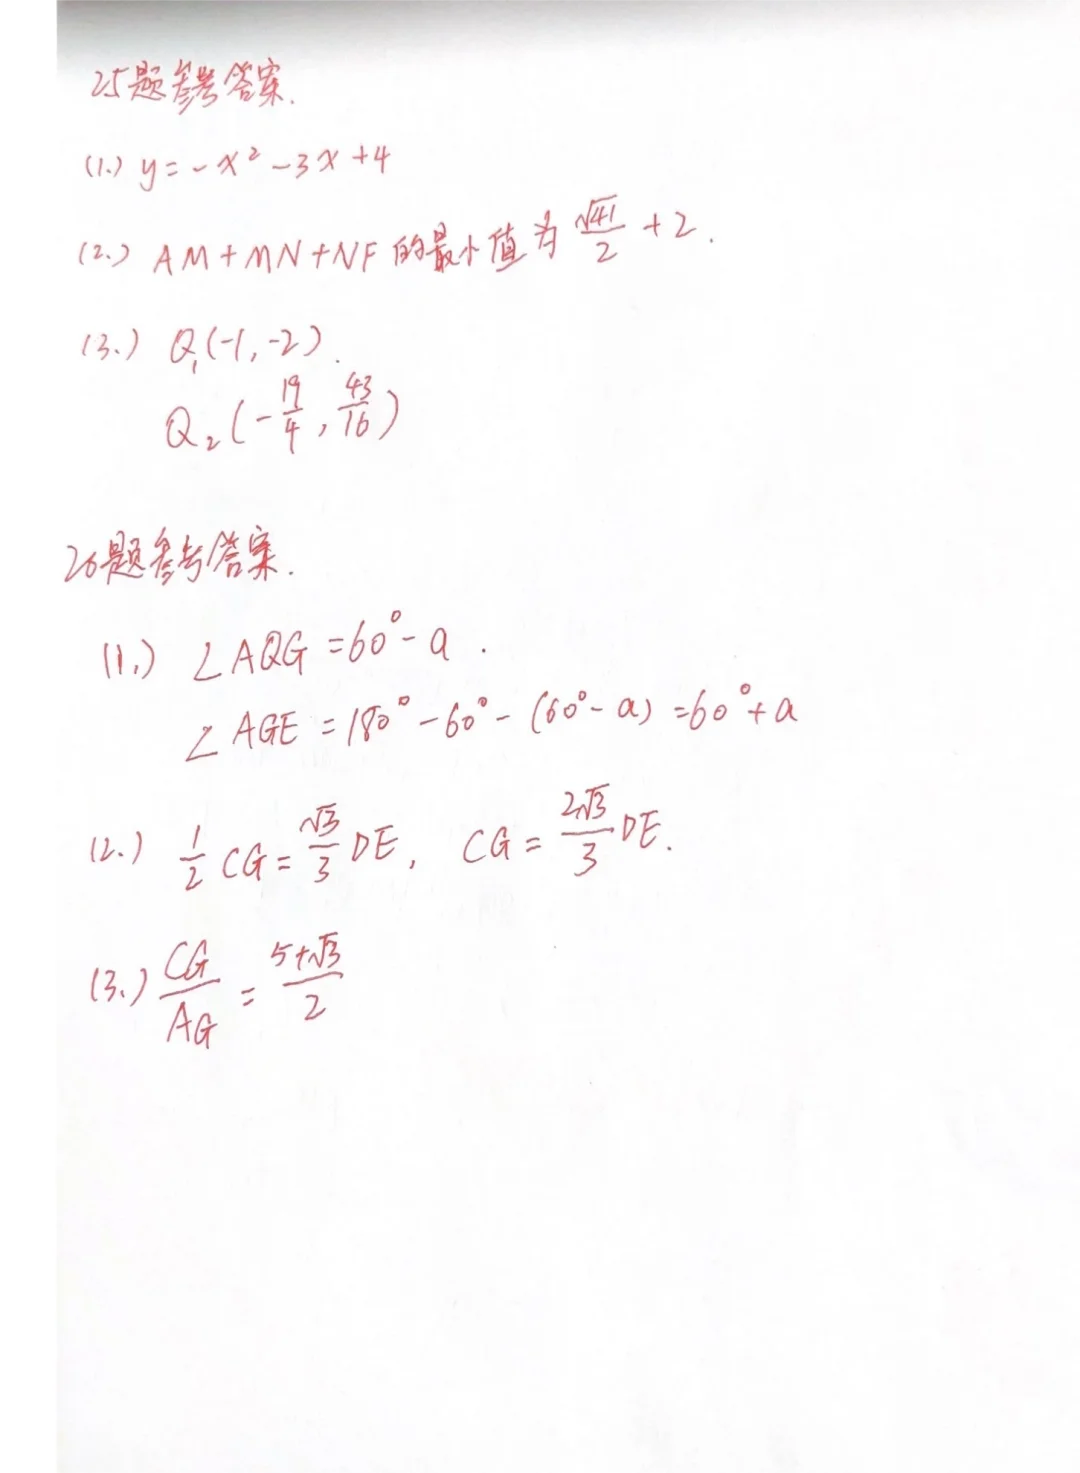 25题参考答案.
(1.) y=-x²-3x+4
(2.) AM+MN+NF的最小值为 √41/2 +2.
(3.) Q₁(-1,-2).
Q₂(-19/4, 43/16)
26题参考答案.
(1.) ∠AQG=60°-a.
∠AGE=180°-60°-(60°-a)=60°+a
(2.) 1/2 CG=√3/3 DE, CG=2√3/3 DE.
(3.) CG/AG=(5+√3)/2